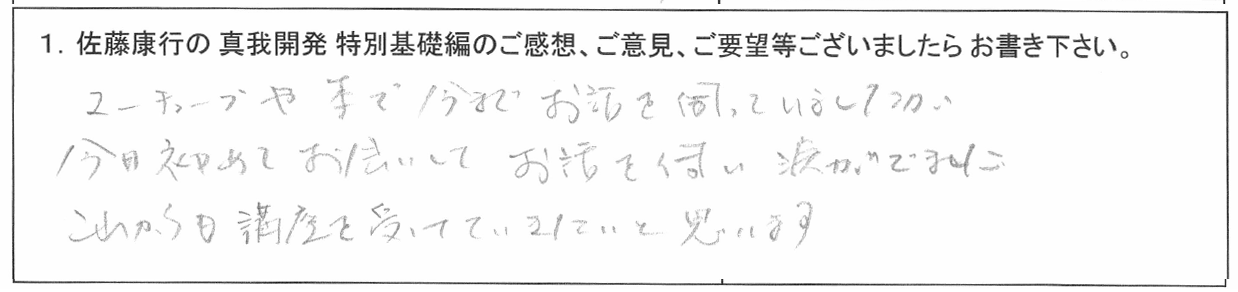 1. 佐藤康行の 真我開発 特別基礎編のご感想、ご意見、ご要望等ございましたら お書き下さい。
ユーチューブや本で今までお話を伺っていましたが
今日初めてお会いして お話を伺い 涙がでました
これからも講座を受けていきたいと思います